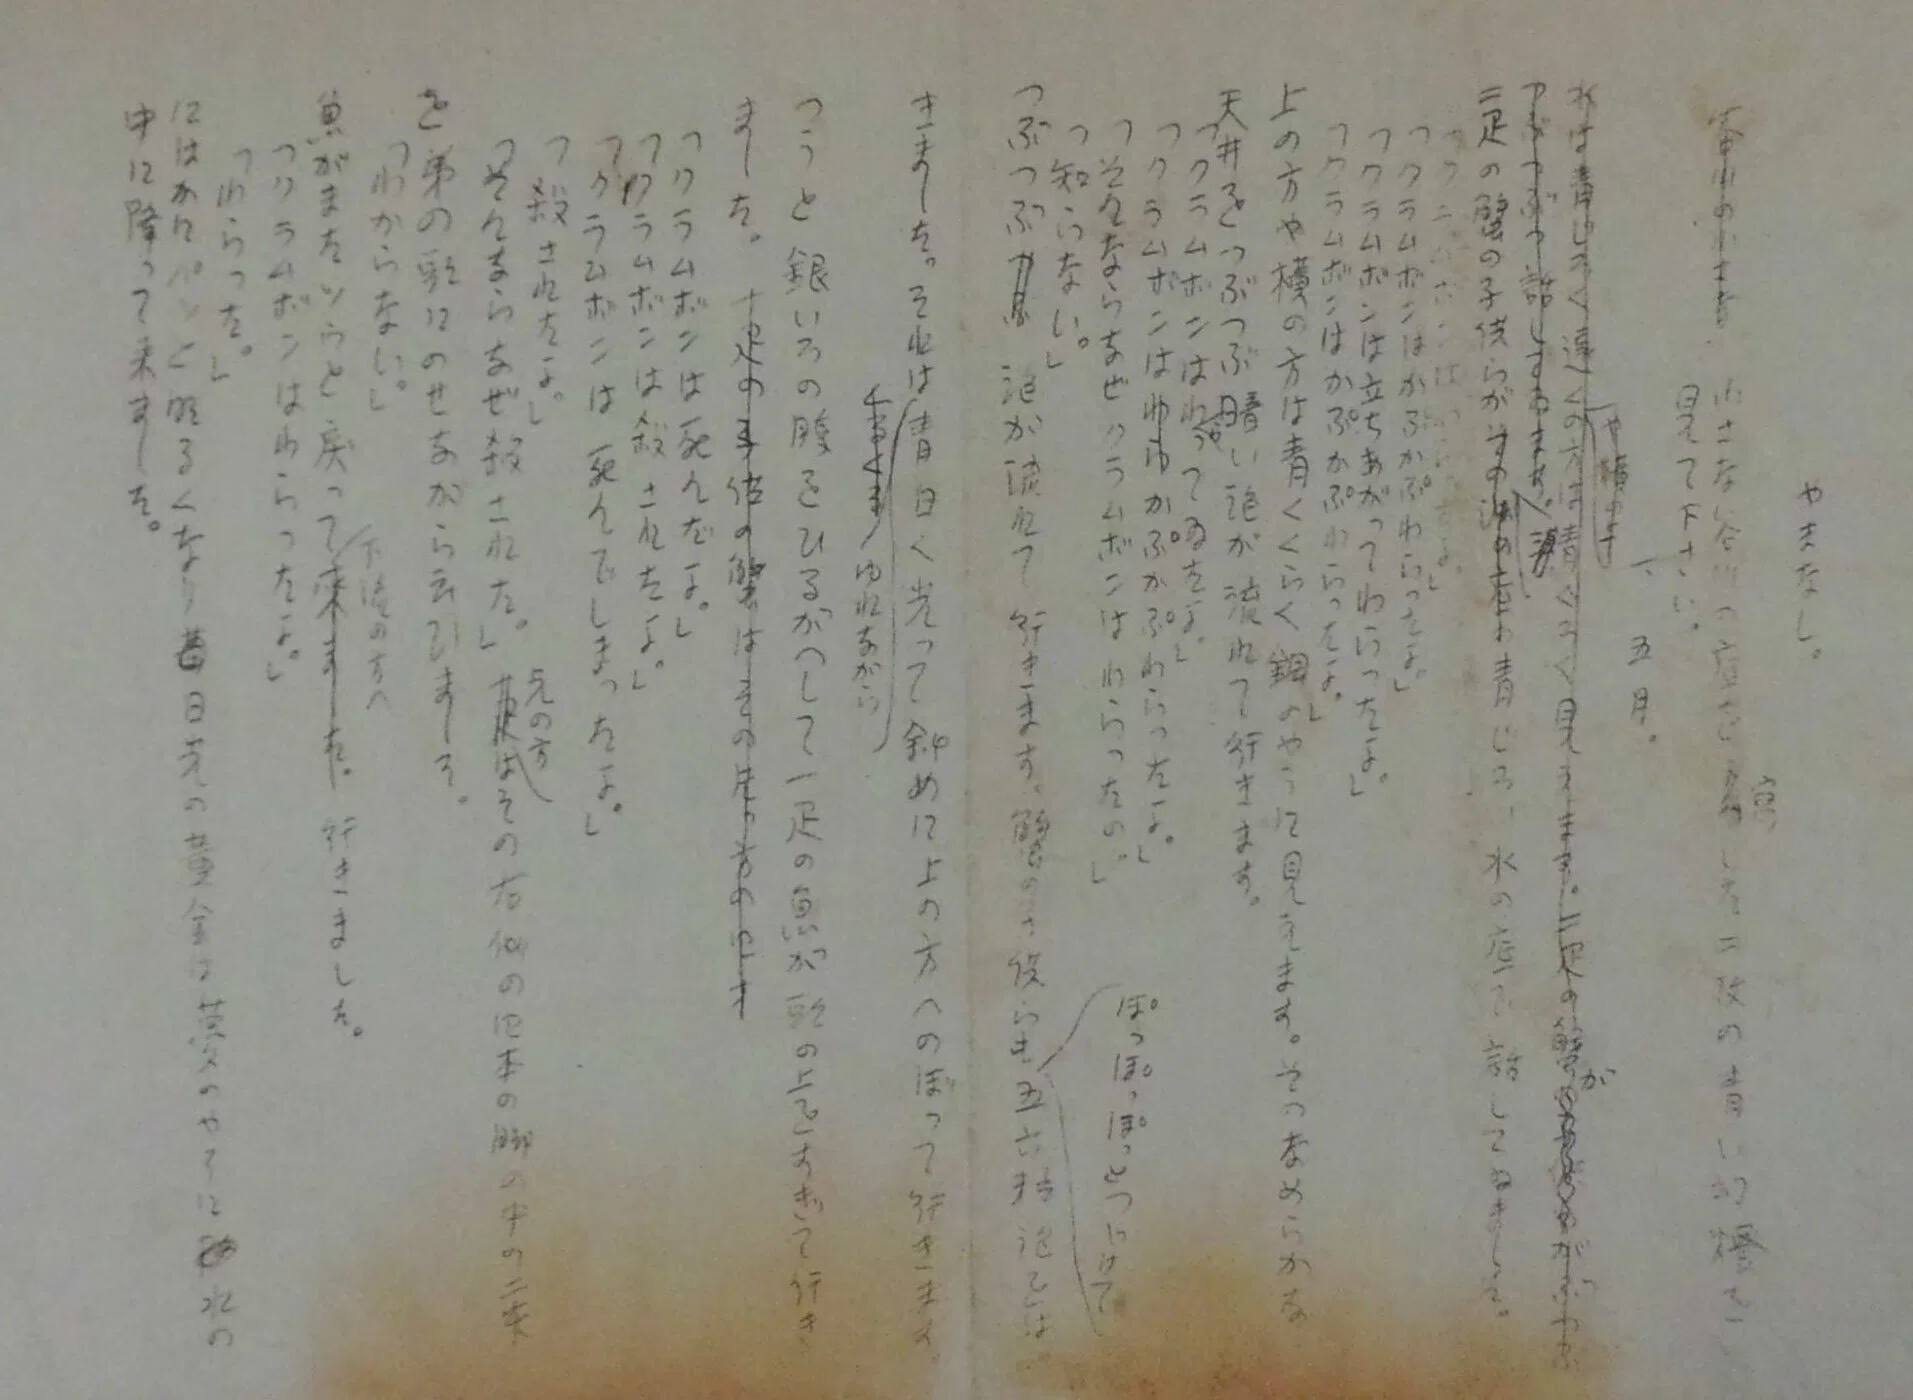 やまなし。
小さな谷川の底を寫した二枚の青い幻燈を
見て下さい。
一、五月。
や横の方
水は青じろく遠くの方は青ぐろく見えます。二疋の蟹が
つぶつぶ話してゐます。
二疋の蟹の子供らが青じろい水の底で話してゐました。
『クラムボンはわらったよ。』
『クラムボンはかぷかぷわらったよ。』
『クラムボンは立ちあがってわらったよ。』
『クラムボンはかぷかぷわらったよ。』
上の方や横の方は青くくらく鋼のやうに見えます。そのなめらかな
天井をつぶつぶ暗い泡が流れて行きます。
『クラムボンはわらってゐたよ。』
『クラムボンはかぷかぷわらったよ。』
『そんならなぜクラムボンはわらったの。』
『知らない。』
ぽっぽっぽっとつゞけて
つぶつぶ泡が流れて行きます。蟹の子供らも五六粒泡をは
きました。それは青白く光って斜めに上の方へのぼって行きます。
ゆれながら
つうと銀いろの腹をひるがへして一疋の魚が頭の上をすぎて行き
ました。
『クラムボンは死んだよ。』
『クラムボンは殺されたよ。』
『クラムボンは死んでしまったよ。』
『殺されたよ。』
『そんならなぜ殺された。』兄の方はその右側の四本の脚の中の二本
を弟の頭にのせながら云ひました。
『わからない。』
下流の方へ
魚がまたツウと戻って来ました。行きました。
『クラムボンはわらったよ。』
『わらった。』
にはかにパッと明るくなり日光の黄金は夢のやうに水の
中に降って来ました。